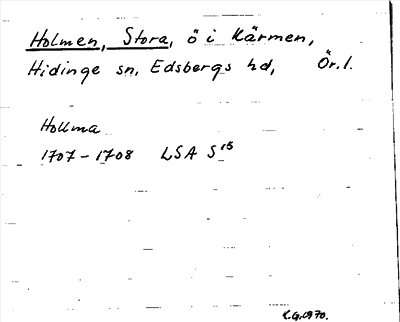 Holmen, Stora, ö i Kärmen,
Hidinge sn, Edsbergs hd, Ör. l.
Hollma
1707-1708 LSA S 15
L.G. 1970.